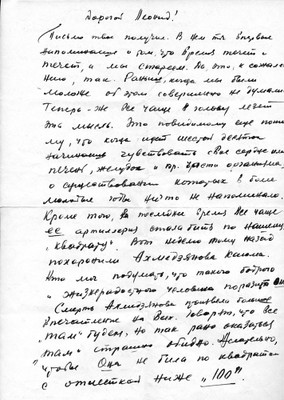 Дорогой Леонид!
Письмо твое получил. В нем ты впервые
напоминаешь о том, что время течет и
течет, а мы стареем. Да, это, к сожале-
нию, так. Раньше, когда мы были
моложе об этом совершенно не думали.
Теперь-же все чаще в голову лезет
эта мысль. Это повидимому еще пото
му, что когда идет шестой десяток
начинаешь чувствовать свое сердце или
печень, желудок и пр. части организма,
о существовании которых в более
молодые годы ничто не напоминало.
Кроме того, в последнее время все чаще
ее артиллерия стала бить по нашему
"квадрату". Вот неделю тому назад
похоронили Ахмедзянова
Кто мог подумать, что такого бодрого
и жизнерадостного человека поразит она
Смерть Ахмедзянова произвела большое
впечатление на всех. Говорят, что все
"там" будем. Но так рано оказаться
"там" страшно обидно. Желательно,
чтобы Она не била по квадратам
с отметкой ниже "100".